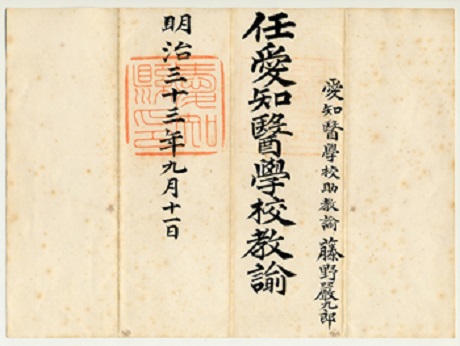 愛知醫學校助教諭 藤野嚴九郎
任愛知醫學校教諭
明治三十三年九月十一日
愛知縣印